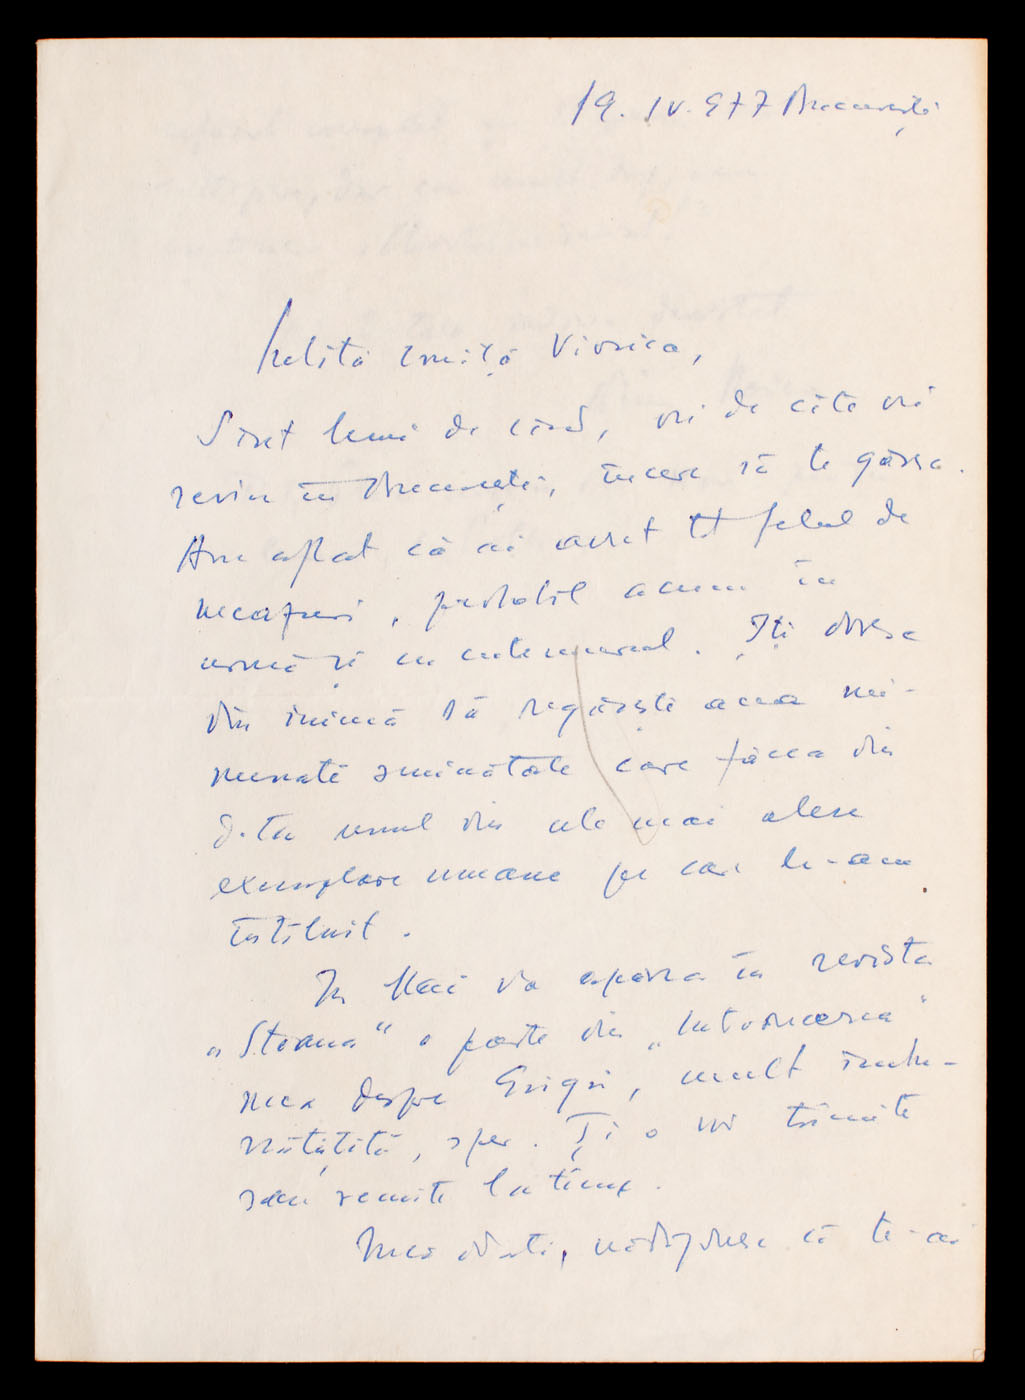 19. IV. 977 București
Iubită Coniță Viorica,
Sînt luni de cînd, ori de cîte ori
revin în București, încerc să te găsesc.
Am aflat că ai avut tot felul de
necazuri, probabil acum în
urmă și cu cutremurul. Îți doresc
din inimă să regăsești acea mi-
nunată seninătate care făcea din
d-ta unul din cele mai alese
exemplare umane pe care le-am
întîlnit.
În Mai va apărea în revista
„Steaua" o parte din „Întoarcerea"
mea despre Grigri, mult îmbu-
nătățită, sper. Ți-o voi trimite
sau remite la timp.
Încă odată, nădăjduesc că te-ai